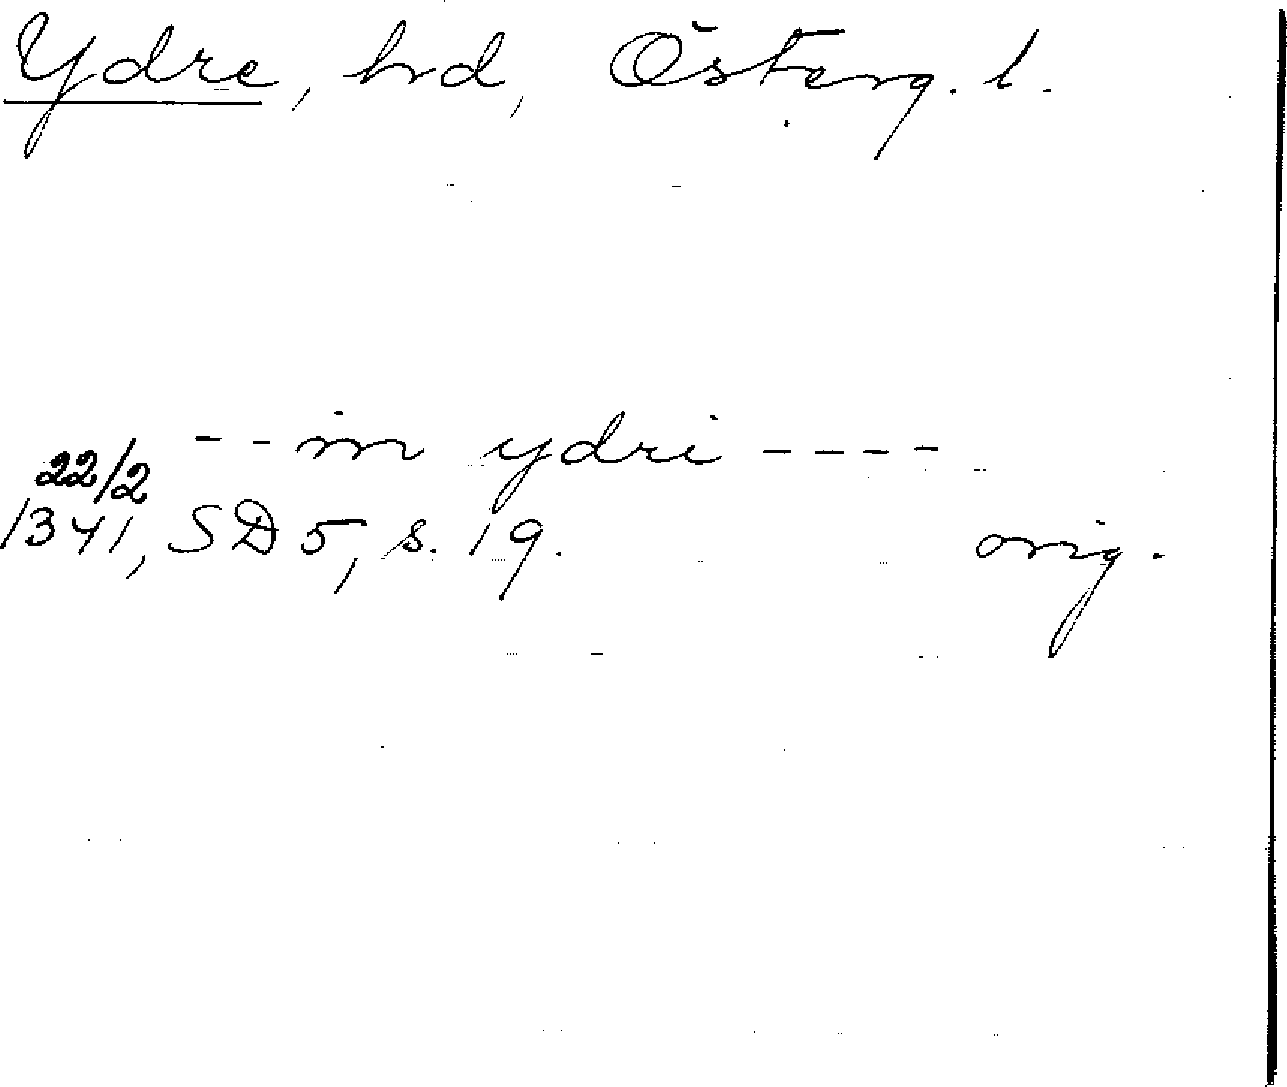 Ydre, hd, Österg. l.
- - in ydri - - - -
22/2
1341, SD 5, s. 19. orig.